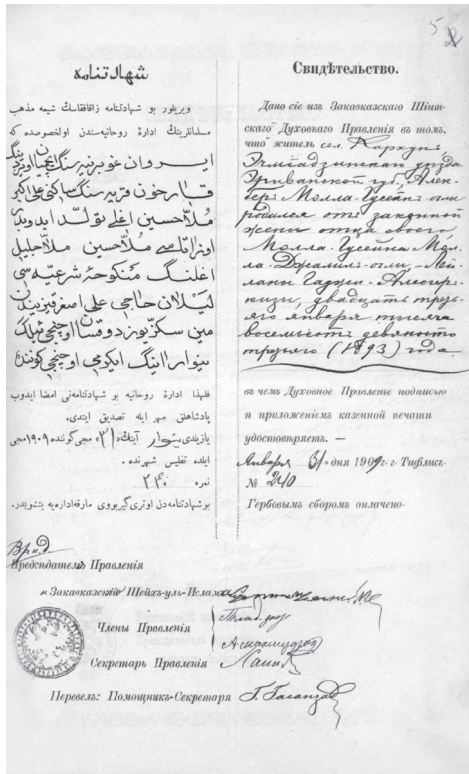 5
شهادتنامه
ویریلور بو شهادتنامه زاقافقاسک شیعه مذهب
مسلمانلرینک ادارهٔ روحانیه سندن اولخصوصده که
ایروان غوبرنیه سنک
قارخون قریه سنک ساکنی علی اکبر
ملاحسین اغلی تولد ایدوبدر
اوز اتاسی ملاحسین ملاجلیل
اغلنک منکوحهٔ شرعیه سی
لیلان حاجی علی اصغر قیزیندن
مین سکز یوز دوقسان اوچنجی ییلک
ینوارا اینک ایکرمی اوچنجی کوننده
فلهذا ادارهٔ روحانیه بو شهادتنامه نی امضا ایدوب
پادشاهلق مهر ایله تصدیق ایتدی.
یازیلدی ینوار آینک ۳۱ مجی کوننده ۱۹۰۹ مجی
ایلده تفلیس شهرنده.
نمره ۲۴۰
بو شهادتنامه دن اوتری گیربووی مارقه اداره یه یتشوبدر.
Свидѣтельство.
Дано сіе изъ Закавказскаго Шіит-
скаго Духовнаго Правленія въ томъ,
что житель сел. Кархунъ
Эчміадзинскаго уѣзда
Эриванской губ. Алек-
беръ Молла-Гусейнъ-оглы
родился отъ законной
жены отца своего
Молла-Гусейна Мол-
ла-Джалилъ-оглы, Лей-
ланы Гаджи-Алескеръ-
кизы, двадцать треть-
яго января тысяча
восемьсотъ девяносто
третьяго (1893) года
въ чемъ Духовное Правленіе подписью
и приложеніемъ казенной печати
удостовѣряетъ. —
Января 31 дня 1909 г. г Тифлисъ
№ 240
Гербовымъ сборомъ оплачено
Вр. и. д.
Предсѣдателя Правленія
и Закавказскій Шейхъ-уль-Ислама
Члены Правленія
Секретарь Правленія
Перевелъ: Помощникъ-Секретаря Г. Гасанзаде